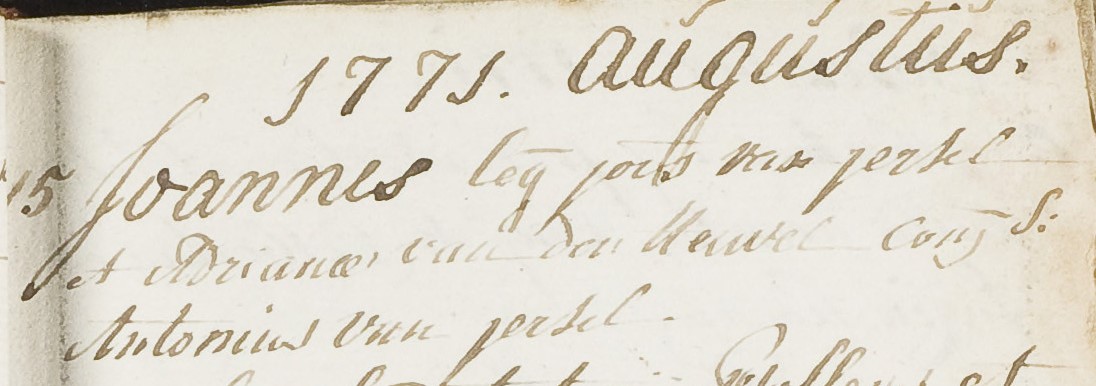 1771. augustus.
15 Joannes leg jois van persel
et Adrianæ van den Heuvel conj S:
Antonius van persel.
et